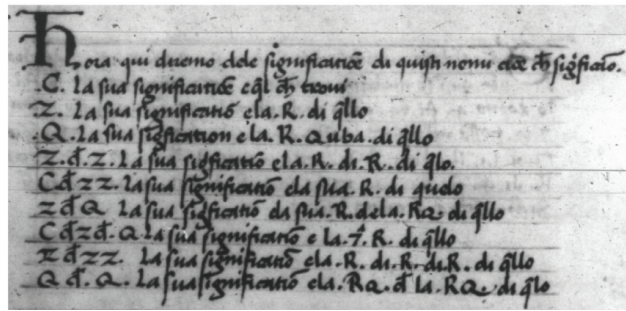 Hora qui diremo dele significatiōe di quisti nomi cioe cħ sigficāo.
.C. La sua significatiōe e q̄l cħ trovi
.Z. La sua significatiō e la .R. di q̄llo
.Q. La sua sigfication e la .R. Quba .di q̄llo
.Z. đ .Z. La sua sigficatiō e la .R. di .R. di q̄lo.
C đ Z Z. La sua significatiō ela sua .R. di quelo
Z đ Q La sua sigficatiō ela sua .R. dela .RQ di q̄llo
C đ Z đ .Q. La sua significatiō e la .7. R. di q̄llo
Z đ Z Z. La sua significatiō ela .R. di .R. di .R. di q̄llo
Q đ .Q. La sua significatiō ela .RQ. đ la .RQ di q̄lo